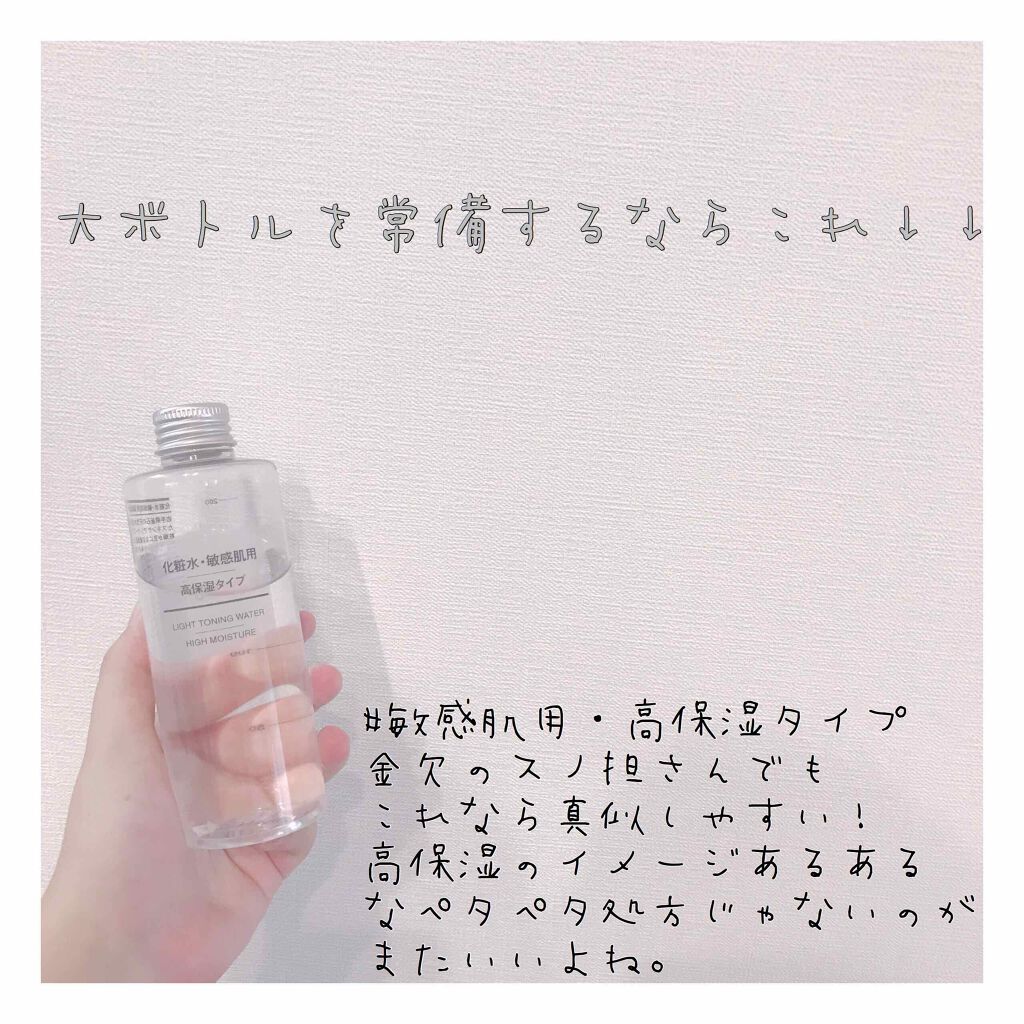 大ボトルを常備するならこれ↓↓
化粧水・敏感肌用
高保湿タイプ
LIGHT TONING WATER
HIGH MOISTURE
200
#敏感肌用・高保湿タイプ
金欠のスノ担さんでも
これなら真似しやすい!
高保湿のイメージあるある
なペタペタ処方じゃないのが
またいいよね。